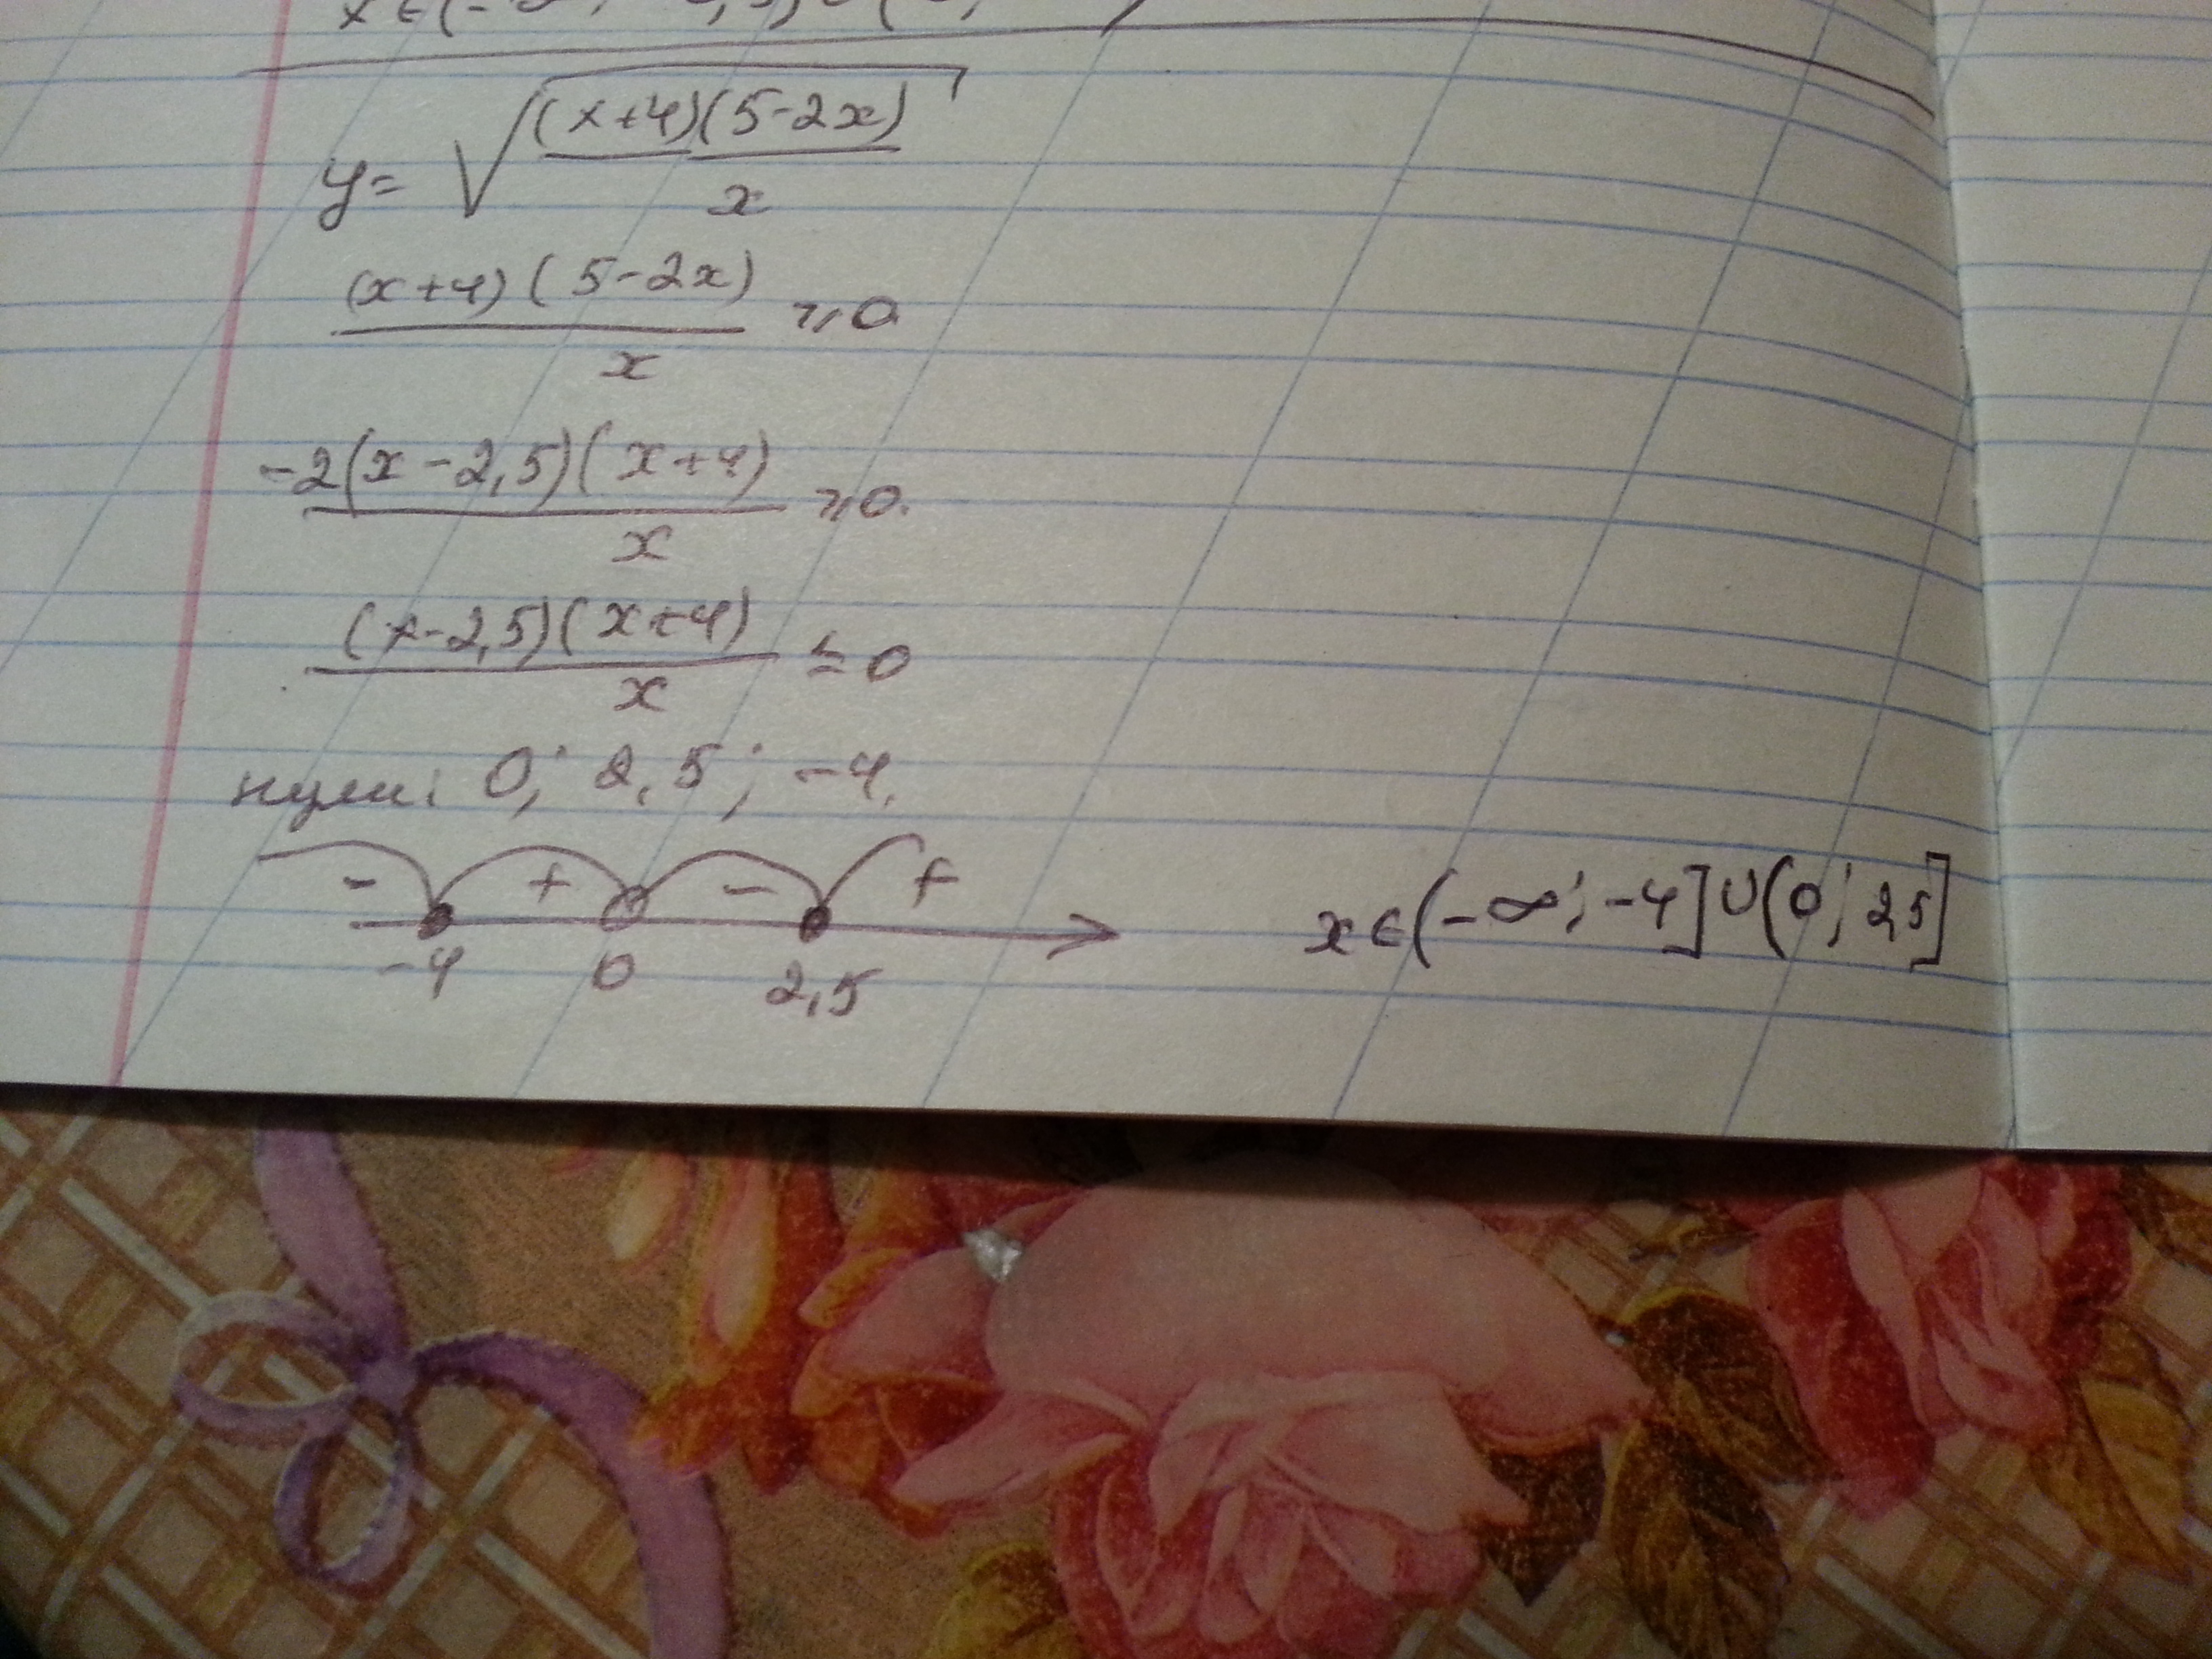 y= √((x+4)(5-2x)/x)
(x+4)(5-2x)/x ≥0
-2(x-2,5)(x+4)/x ≥0.
(x-2,5)(x+4)/x ≤0
нули: 0; 2,5; -4.
- + - +
-4 0 2,5
x∈(-∞; -4]∪(0; 2,5]